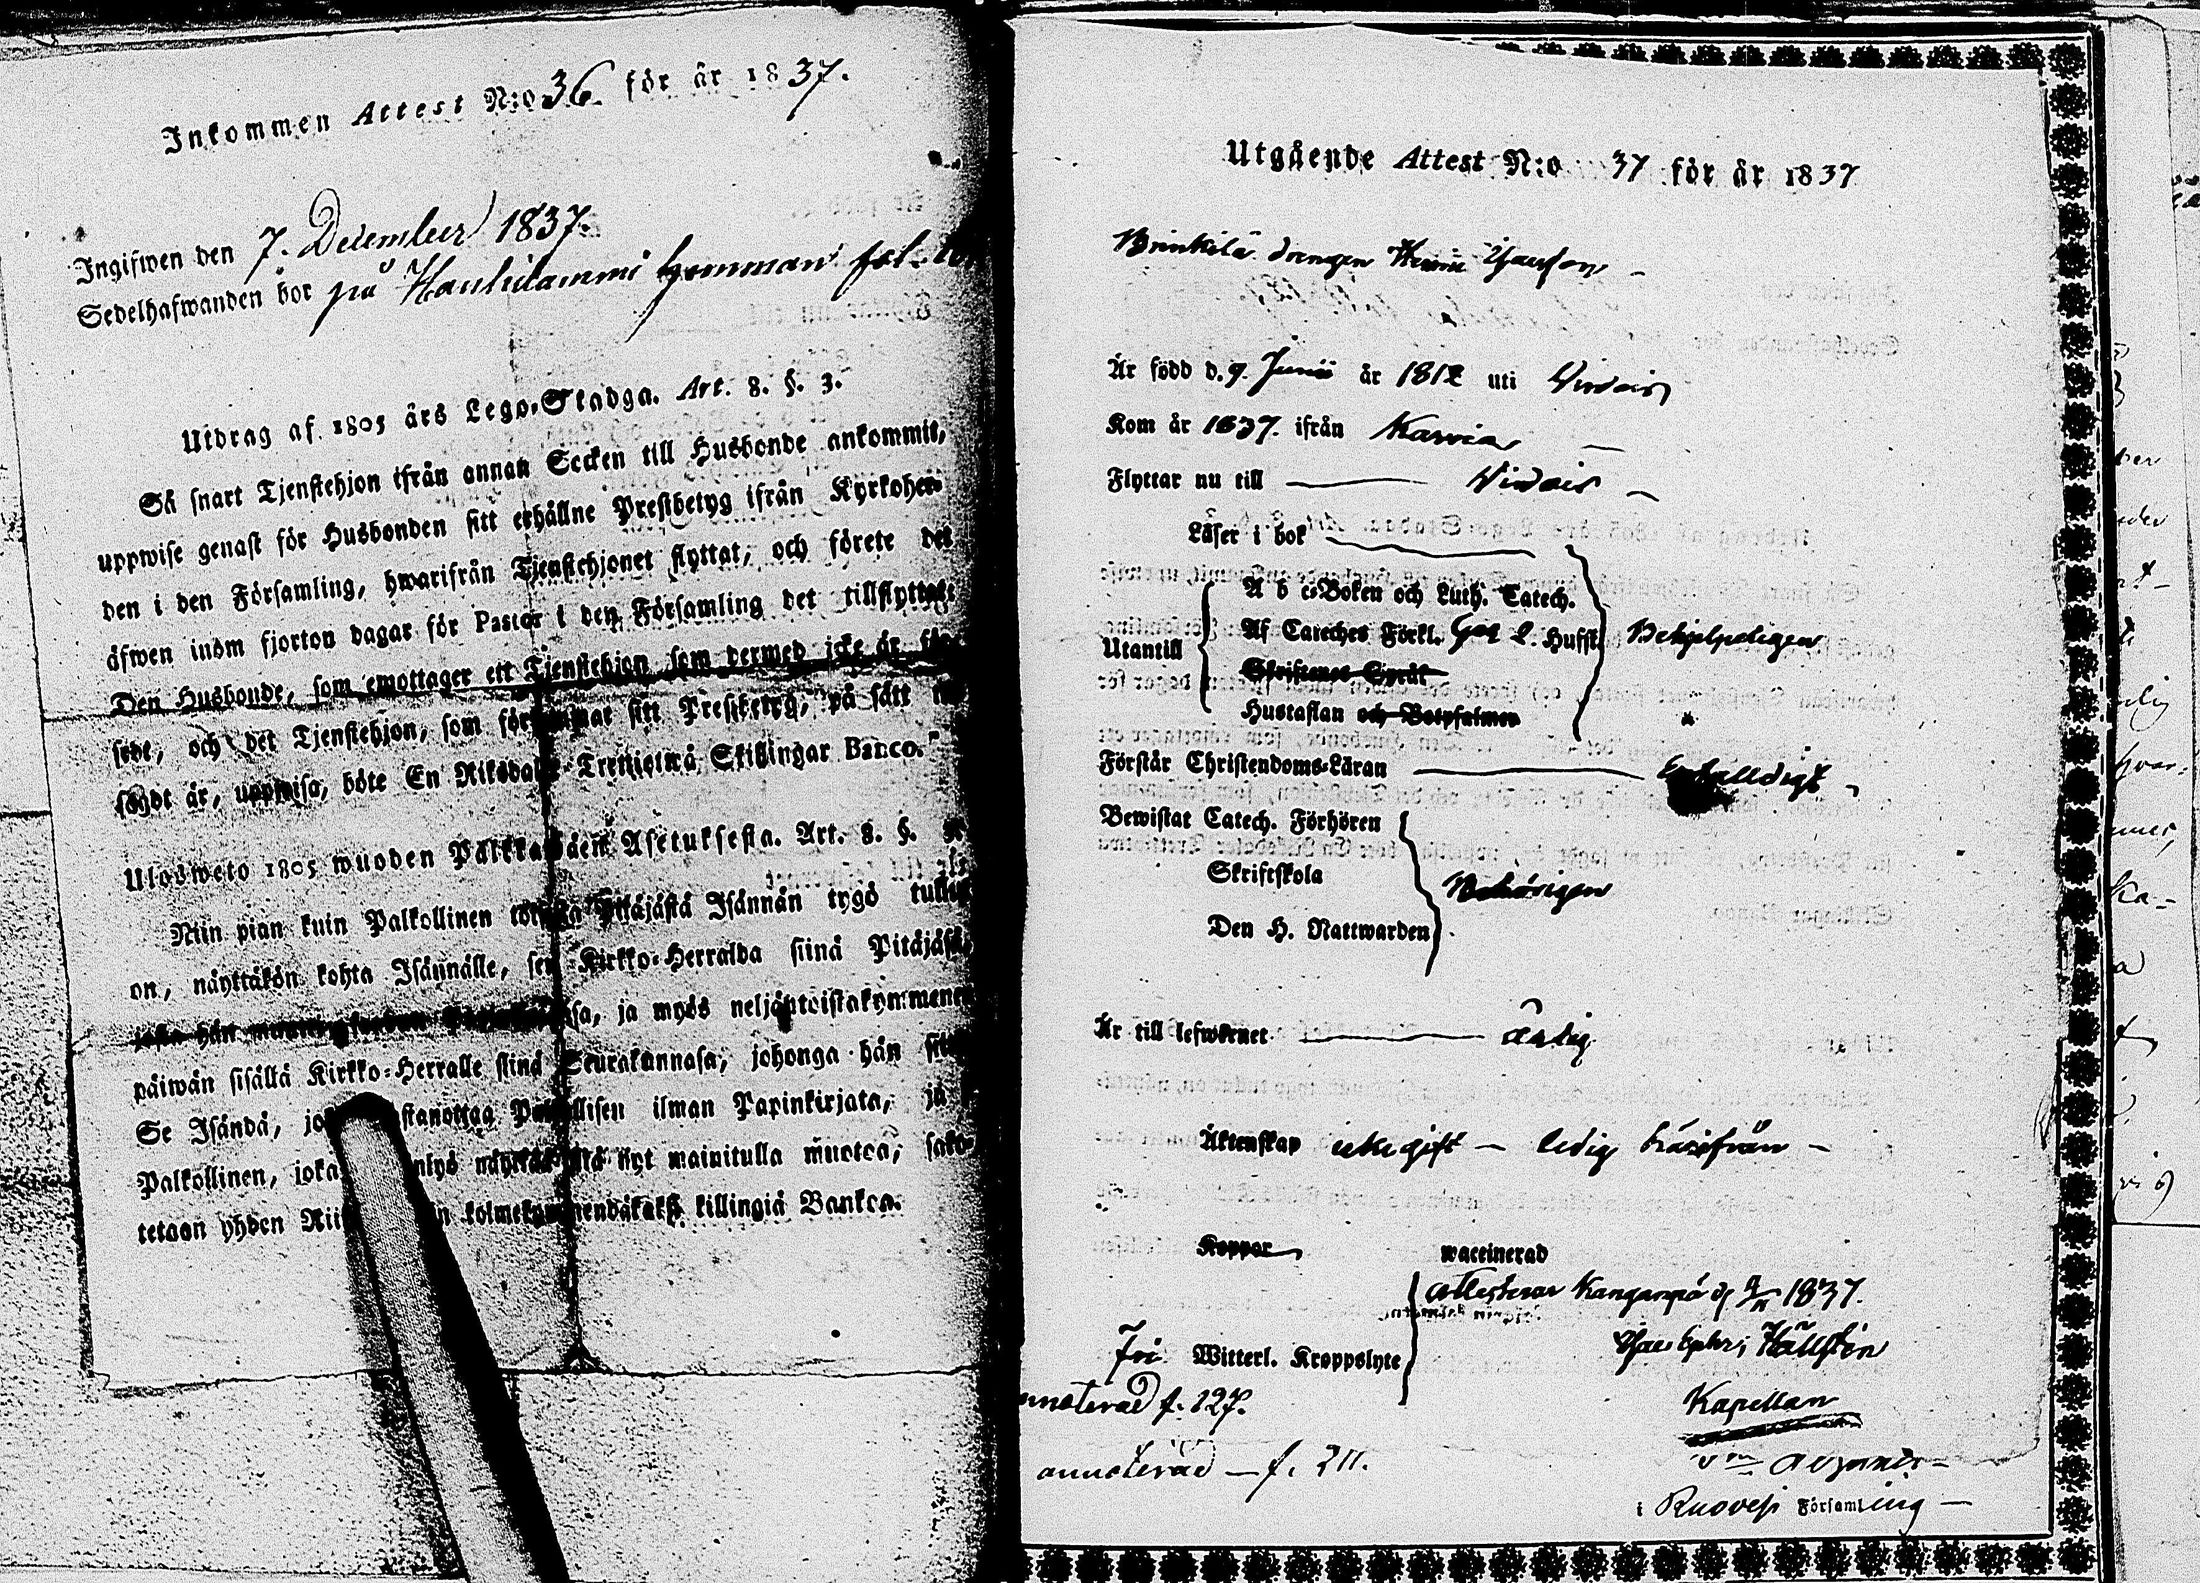 Inkommen Attest N:o 36. för år 1837.
Ingifwen den 7. December 1837.
Sedelhafwanden bor på Hauhilammi hemman fol.
Utdrag af 1805 års Lego-Stadga. Art. 8. §. 3.
Så snart Tjenstehjon ifrån annan Socken till Husbonde ankommit,
uppwise genast för Husbonden sitt erhållne Prestbetyg ifrån Kyrkoher-
den i den Församling, hwarifrån Tjenstehjonet flyttat, och förete det
äfwen inom fjorton dagar för Pastor i den Församling det tillflyttat.
Den Husbonde, som emottager ett Tjenstehjon som dermed icke är för-
sedt, och det Tjenstehjon, som försummat sitt Prestbetyg, på sätt
sagdt är, uppwisa, böte En Riksdaler Trettiotwå Skillingar Banco.
Ulosweto 1805 wuoden Palkkawäen Asetuksesta. Art. 8. §.
Niin pian kuin Palkollinen toisesta Pitäjästä Isännän tygö tullut
on, näyttäkön kohta Isännälle, sen Kirkko-Herralda siinä Pitäjäsä,
josta hän sa, ja myös neljäntoistakymmenen
päiwän sisällä Kirkko-Herralle siinä Seurakunnasa, johonga hän
Se Isändä, joka wastanottaa Palkollisen ilman Papinkirjata, ja
Palkollinen, joka nyt mainitulla muotoa, sako-
tetaan yhden kolmekymmendäkaksi killingiä Bankoa.
Utgående Attest N:o 37 för år 1837
Brinkilä drengen Henric Isacsson
Är född d. 9. Junii år 1812 uti Virdois
Kom år 1837. ifrån Karvia
Flyttar nu till Virdois
Läser i bok
A b c-Boken och Luth. Catech.
Utantill Af Cateches Förkl. 2. Hufst. Behjelpeligen
Skriftenes Språk
Hustaflan och Botpsalmer
Förstår Christendoms-Läran enfalldigt
Bewistat Catech. Förhören
Skriftskola Behörigen
Den H. Nattwarden
Är till lefwernet ärlig
Äktenskap icke gift – ledig härifrån –
Koppor waccinerad
attesterar Kangaspä d. 1837.
Fri Witterl. Kroppslyte Hällstén
annoterad f. 127. Kapellan
annoterad – f. 211.
i Ruovesi Församling –